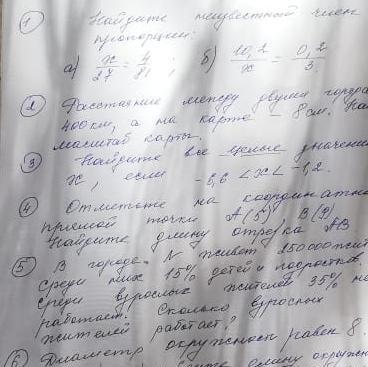 1 Найдите неизвестный член
пропорции:
а) x/27 = 4/81 ; б) 10,2/x = 0,2/3
2 Расстояние между двумя города
400 км, а на карте – 8 см. Най
масштаб карты.
3 Найдите все целые значени
x, если -6,6 < x < -1,2.
4 Отметьте на координатно
прямой точки А(5), В(
Найдите длину отрезка АВ
5 В городе N живет 250000 жит
Среди них 15% детей и подростков.
Среди взрослых жителей 35% не
работает. Сколько взрослых
жителей работает?
6 Диаметр окружности равен 8.
длину окружн